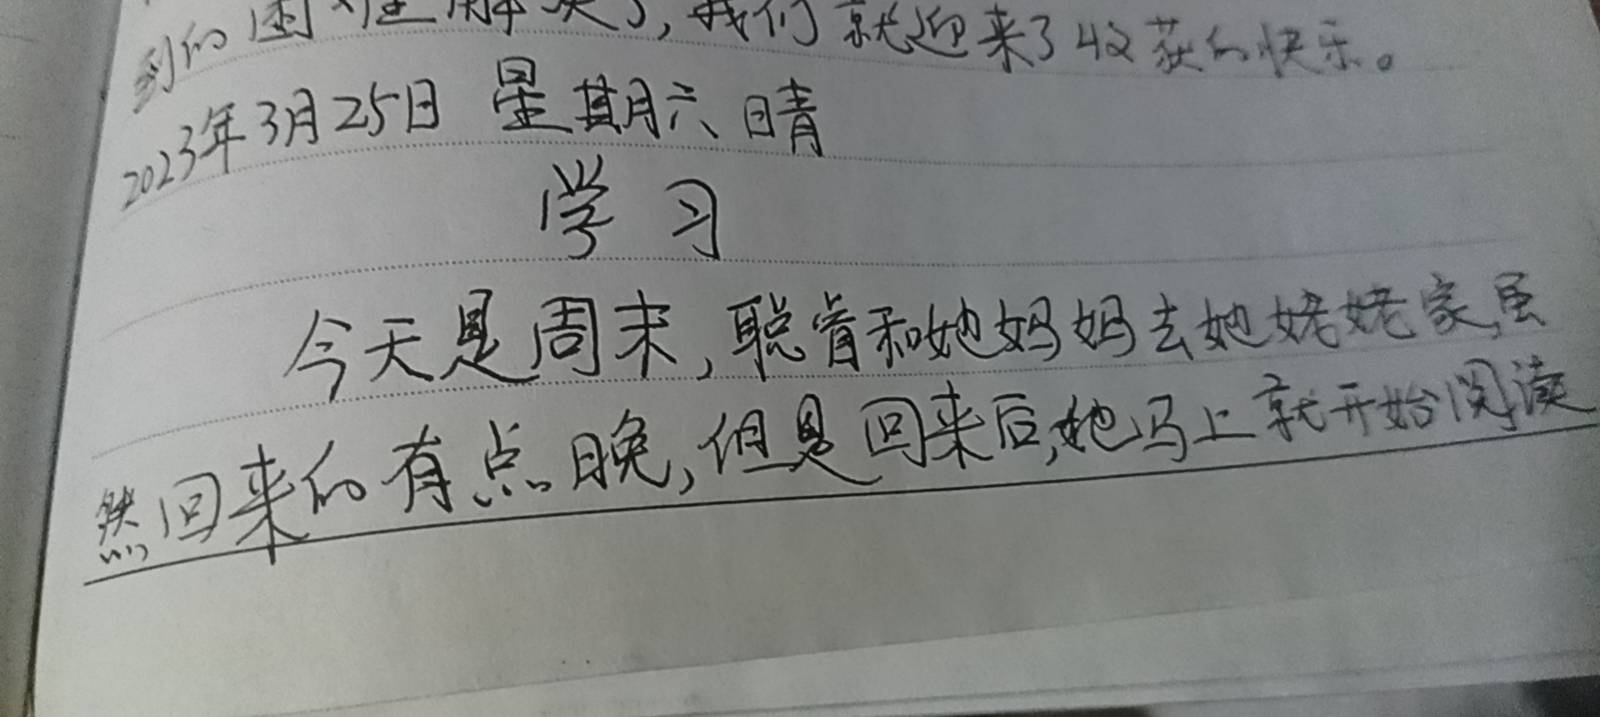 到的困难解决了,我们就迎来了收获的快乐。
2023年3月25日 星期六 晴
学习
今天是周末,聪睿和她妈妈去她姥姥家,虽
然回来的有点晚,但是回来后,她马上就开始阅读